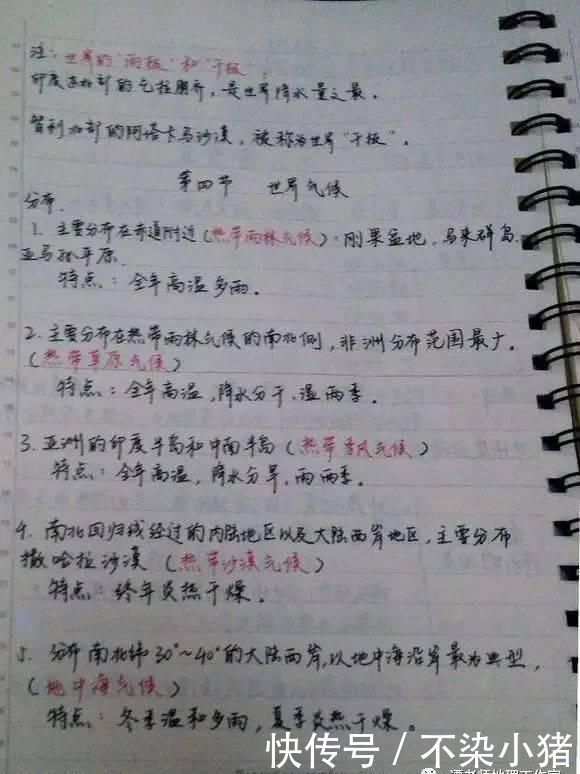 注：世界的“雨极”和“干极”：
印度东北部的乞拉朋齐，是世界降水量之最。
智利北部的阿塔卡马沙漠，被称为世界“干极”。
第四节 世界气候
分布.
1. 主要分布在赤道附近(热带雨林气候)：刚果盆地，马来群岛
亚马孙平原.
特点：全年高温多雨。
2. 主要分布在热带雨林气候的南北侧，非洲分布范围最广。
(热带草原气候)
特点：全年高温，降水分干、湿两季。
3. 亚洲的印度半岛和中南半岛(热带季风气候)
特点：全年高温，降水分旱、雨两季。
4. 南北回归线经过的内陆地区以及大陆西岸地区，主要分布
撒哈拉沙漠(热带沙漠气候)
特点：终年炎热干燥。
5. 分布南北纬30°~40°的大陆西岸，以地中海沿岸最为典型，
(地中海气候)
特点：冬季温和多雨，夏季炎热干燥。
快传号/不染小猪